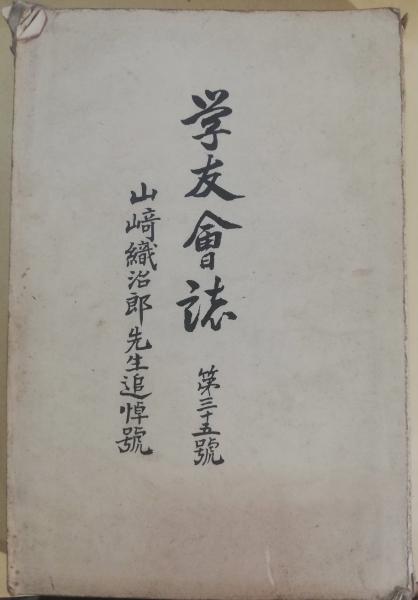 学友會誌 第三十五號
山﨑織治郎先生追悼號